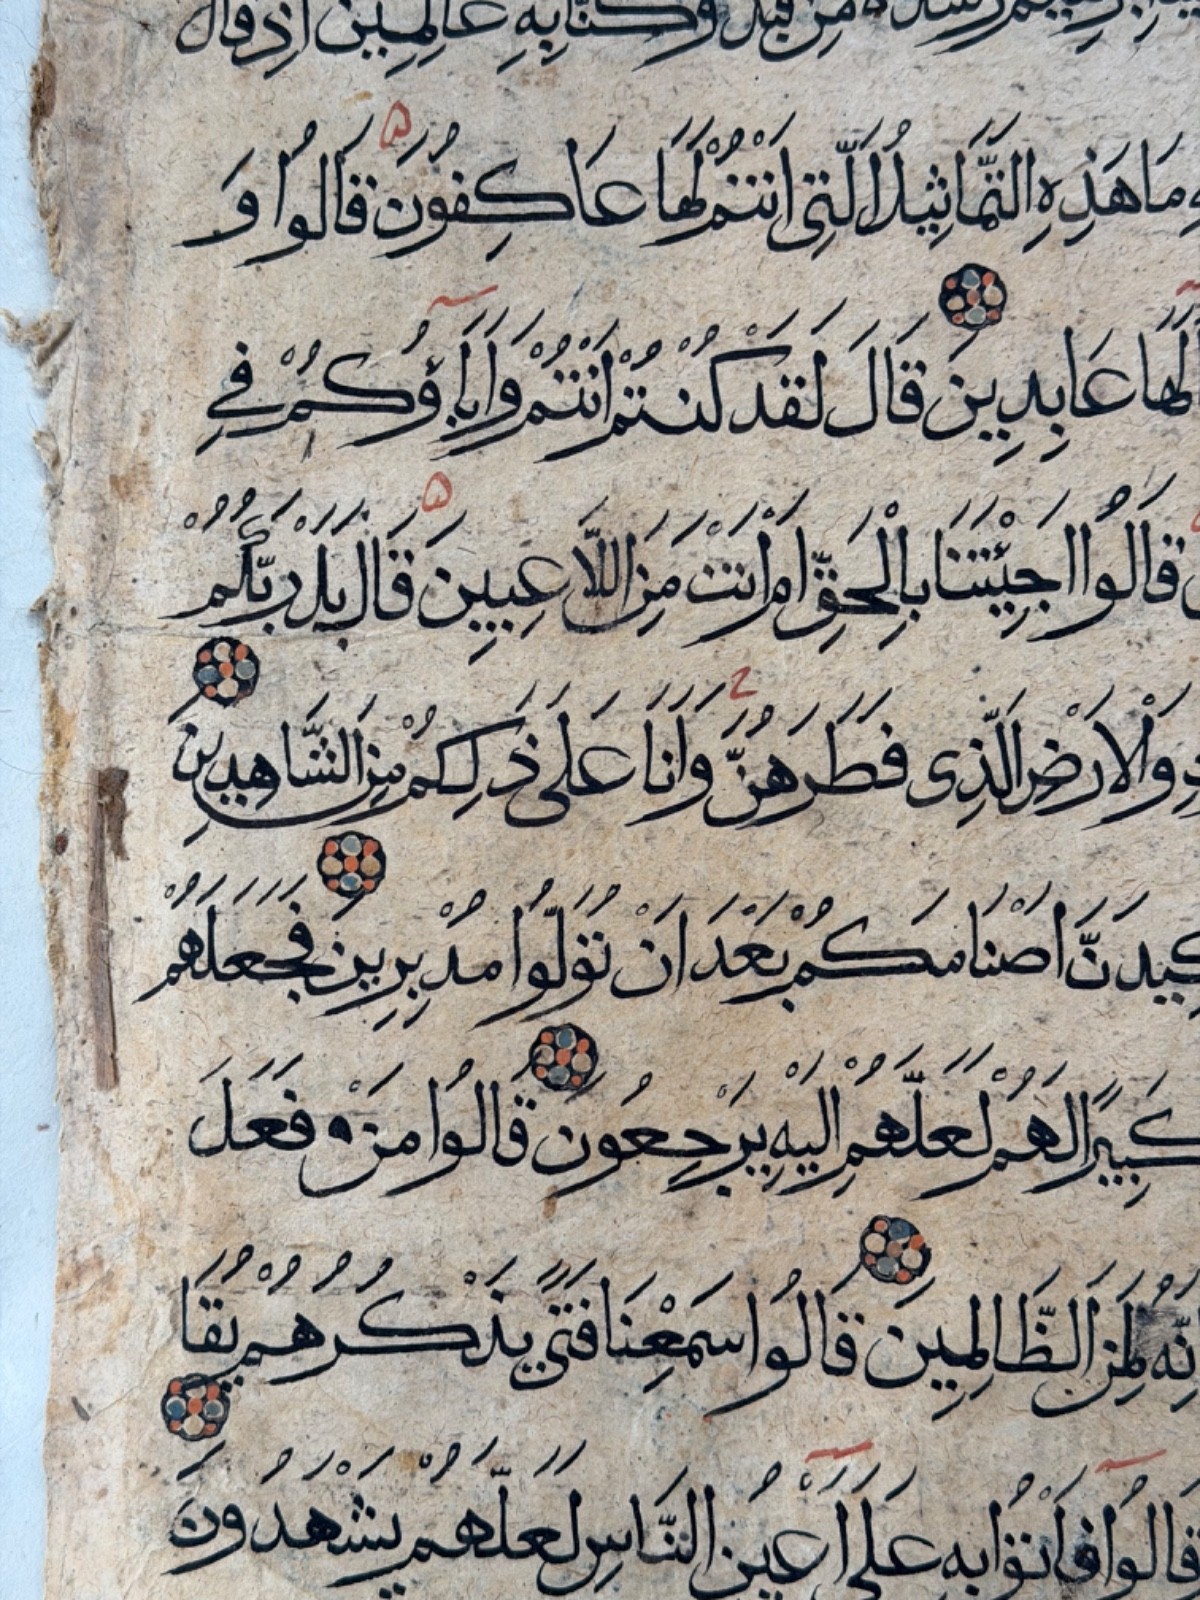 رشده من قبل وكنا به عالمين اذ قال
مَا هَذِهِ التَّمَاثِيلُ الَّتِي اَنْتُمْ لَهَا عَاكِفُونَ قَالُوا وَ
لَهَا عَابِدِينَ قَالَ لَقَدْ كُنْتُمْ اَنْتُمْ وَاَبَاؤُكُمْ فِي
قَالُوا اَجِئْتَنَا بِالْحَقِّ اَمْ اَنْتَ مِنَ اللَّاعِبِينَ قَالَ بَلْ رَبُّكُمْ
وَالْاَرْضِ الَّذِي فَطَرَهُنَّ وَاَنَا عَلَى ذَلِكُمْ مِنَ الشَّاهِدِينَ
كِيدَنَّ اَصْنَامَكُمْ بَعْدَ اَنْ تُوَلُّوا مُدْبِرِينَ فَجَعَلَهُمْ
كَبِيرًا لَهُمْ لَعَلَّهُمْ اِلَيْهِ يَرْجِعُونَ قَالُوا مَنْ فَعَلَ
اِنَّهُ لَمِنَ الظَّالِمِينَ قَالُوا سَمِعْنَا فَتًى يَذْكُرُهُمْ يُقَا
قَالُوا فَاْتُوا بِهِ عَلَى اَعْيُنِ النَّاسِ لَعَلَّهُمْ يَشْهَدُونَ